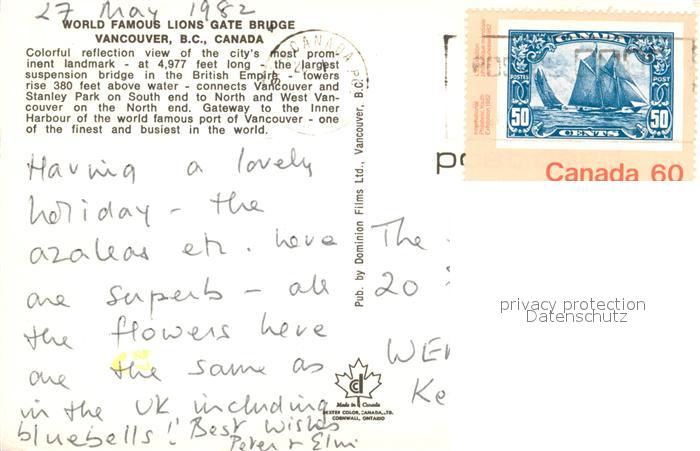 27 May 1982
WORLD FAMOUS LIONS GATE BRIDGE
VANCOUVER, B.C., CANADA
Colorful reflection view of the city's most prom-
inent landmark - at 4,977 feet long - the largest
suspension bridge in the British Empire - towers
rise 380 feet above water - connects Vancouver and
Stanley Park on South end to North and West Van-
couver on the North end. Gateway to the Inner
Harbour of the world famous port of Vancouver - one
of the finest and busiest in the world.
Having a lovely
holiday - the
azaleas etc. here
are superb - all
the flowers here
are the same as
in the UK including
bluebells! Best Wishes
Peter +
Pub. by Dominion Films Ltd., Vancouver, B.C.
Made in Canada
DEXTER COLOR, CANADA, LTD.
CORNWALL, ONTARIO
CANADA
CANADA
POSTES
POSTAGE
50
CENTS
50
Canada 60
The
20
WE
Ke
privacy protection
Datenschutz